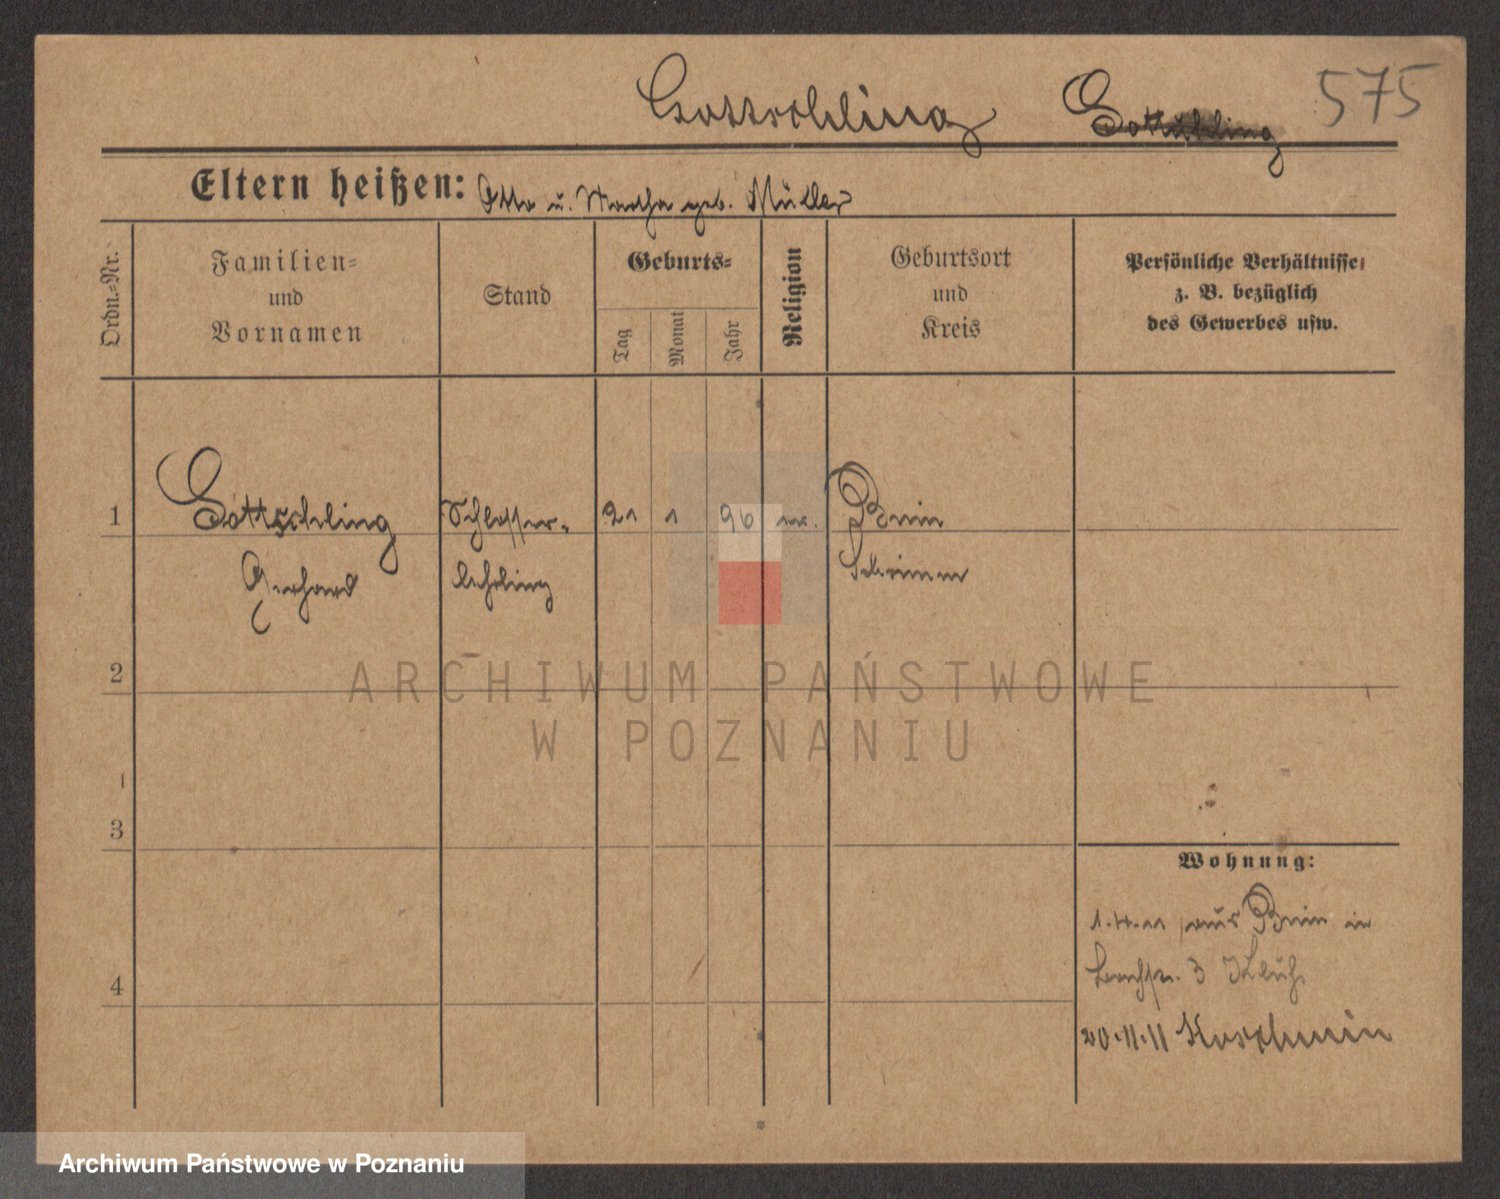 Gottschling Gottschling 575
Eltern heißen: Otto u. Martha geb. Müller
Ordn.-Nr.
Familien-
und
Vornamen
Stand
Geburts-
Tag
Monat
Jahr
Religion
Geburtsort
und
Kreis
Persönliche Verhältnisse
z. B. bezüglich
des Gewerbes usw.
1 Gottschling Schlosser- 21 1 96 ev. Bnin
Gerhard lehrling Schrimm
2
ARCHIWUM PAŃSTWOWE
W POZNANIU
3
Wohnung:
1.4.11 aus Bnin in
3
4
20.11.11 Koschmin
Archiwum Państwowe w Poznaniu